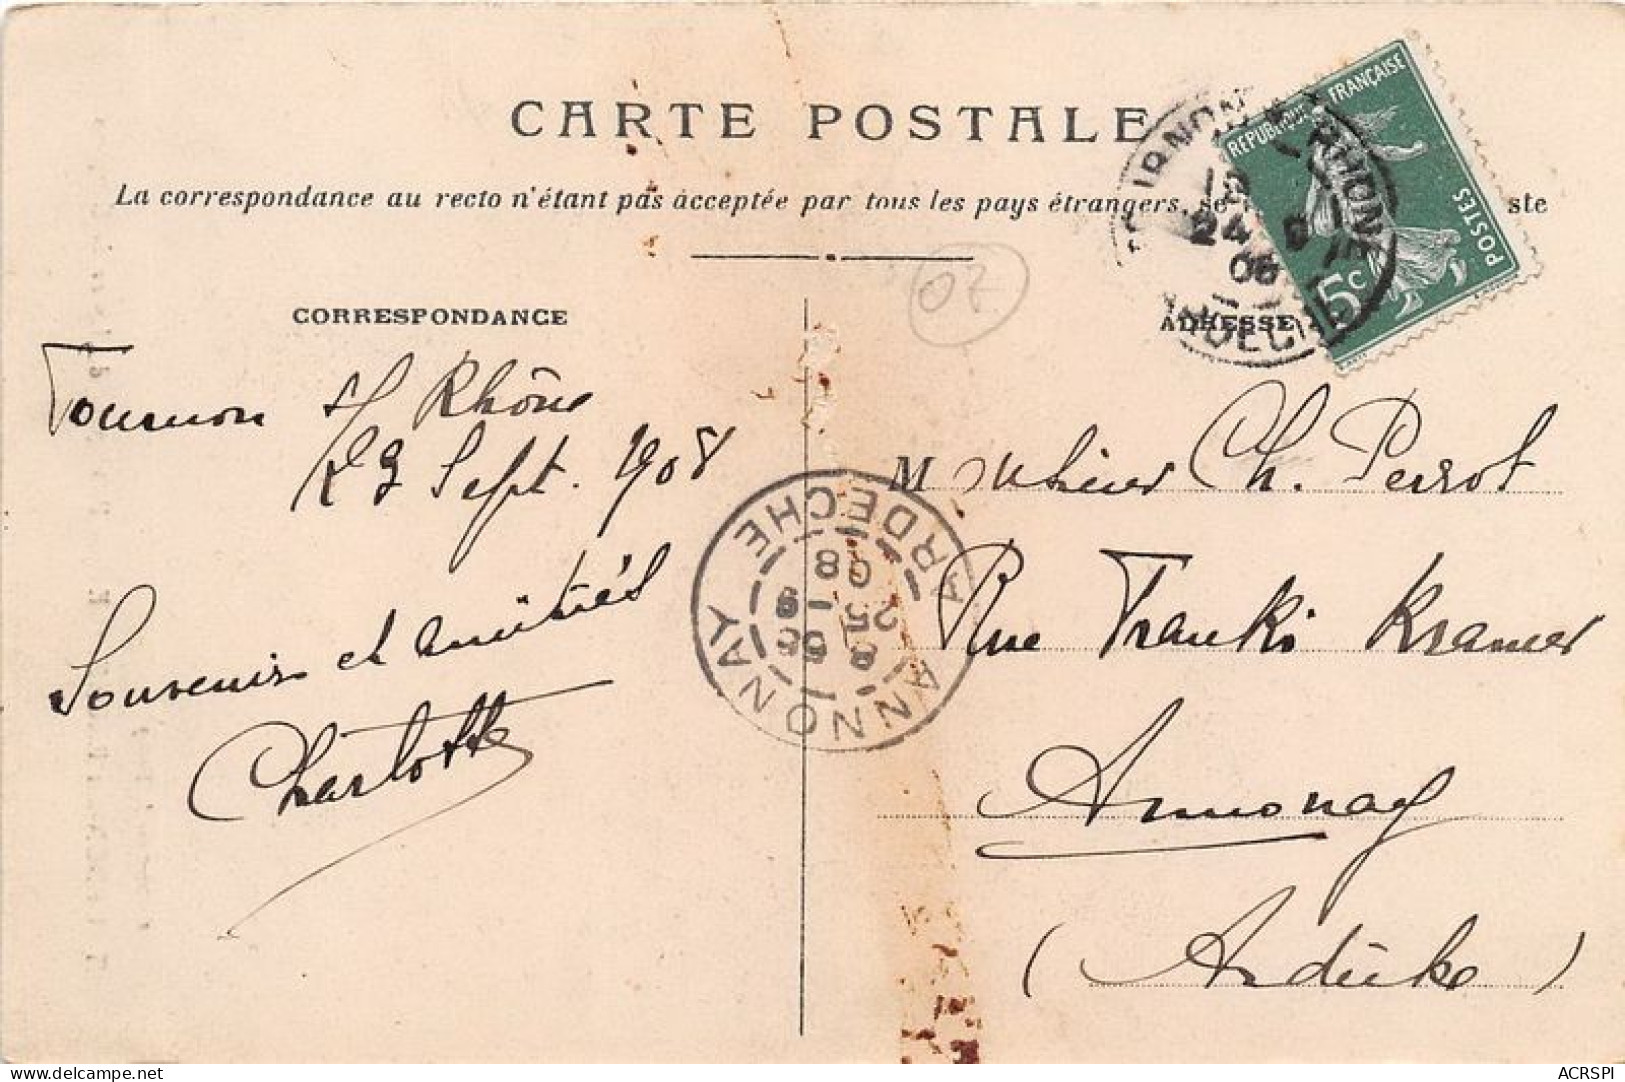 CARTE POSTALE
La correspondance au recto n'étant pas acceptée par tous les pays étrangers, se ste
07.
RÉPUBLIQUE FRANÇAISE
POSTES
5c
RHONE
24 9
08
CORRESPONDANCE
ADRESSE
Tournon s/ Rhône
23 Sept. 1908
Souvenirs et amitiés
Charlotte
ANNONAY
ARDECHE
25 9
08
Monsieur Ch. Perrot
Rue Franki Kramer
Annonay
(Ardèche)
ACRSPI